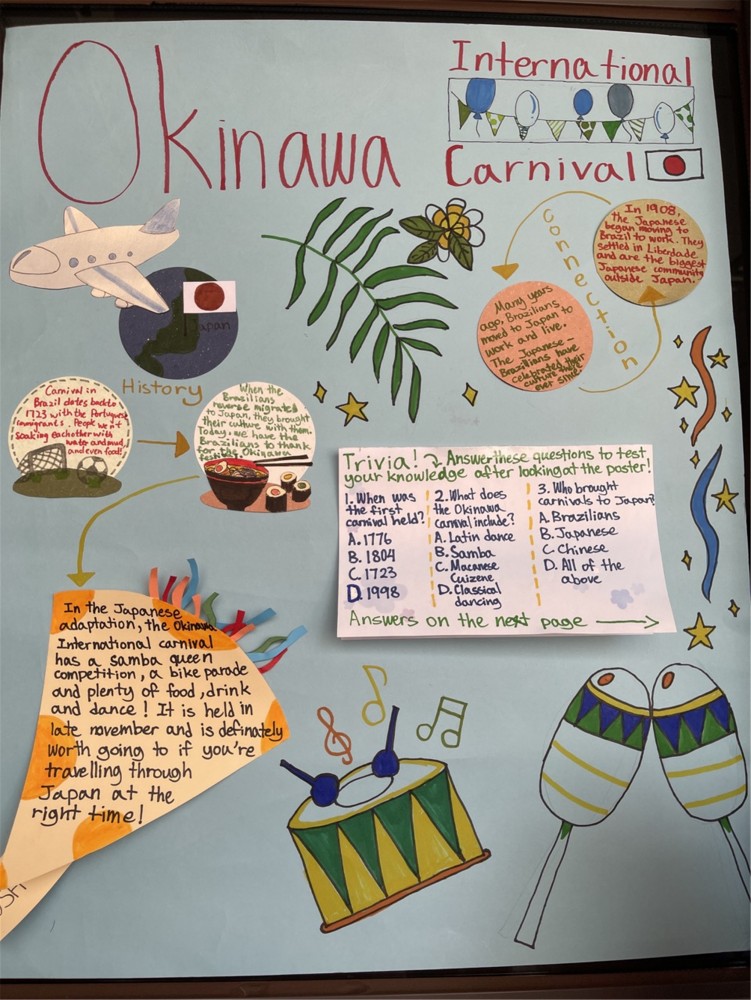 Okinawa
International
Carnival
In 1908,
the Japanese
began moving to
Brazil to work. They
settled in Liberdade
and are the biggest
Japanese community
outside Japan.
connection
Many years
ago, Brazilians
moved to Japan to
work and live.
The Japanese-
Brazilians have
celebrated their
culture
ever since
Japan
History
Carnival in
Brazil dates back to
1723 with the Portuguese
immigrants. People went
soaking each other with
water and mud,
and even food!
When the
Brazilians
reverse migrated
to Japan, they brought
their culture with them.
Today, we have the
Brazilians to thank
for the Okinawa
Trivia! Answer these questions to test
your knowledge after looking at the poster!
1. When was
the first
carnival held?
A. 1776
B. 1804
C. 1723
D. 1998
2. What does
the Okinawa
carnival include?
A. Latin dance
B. Samba
C. Macanese
Cuizene
D. Classical
dancing
3. Who brought
carnivals to Japan?
A. Brazilians
B. Japanese
C. Chinese
D. All of the
above
Answers on the next page
In the Japanese
adaptation, the Okinawa
International carnival
has a samba queen
competition, a bike parade
and plenty of food, drink
and dance! It is held in
late november and is definately
worth going to if you're
travelling through
Japan at the
right time!